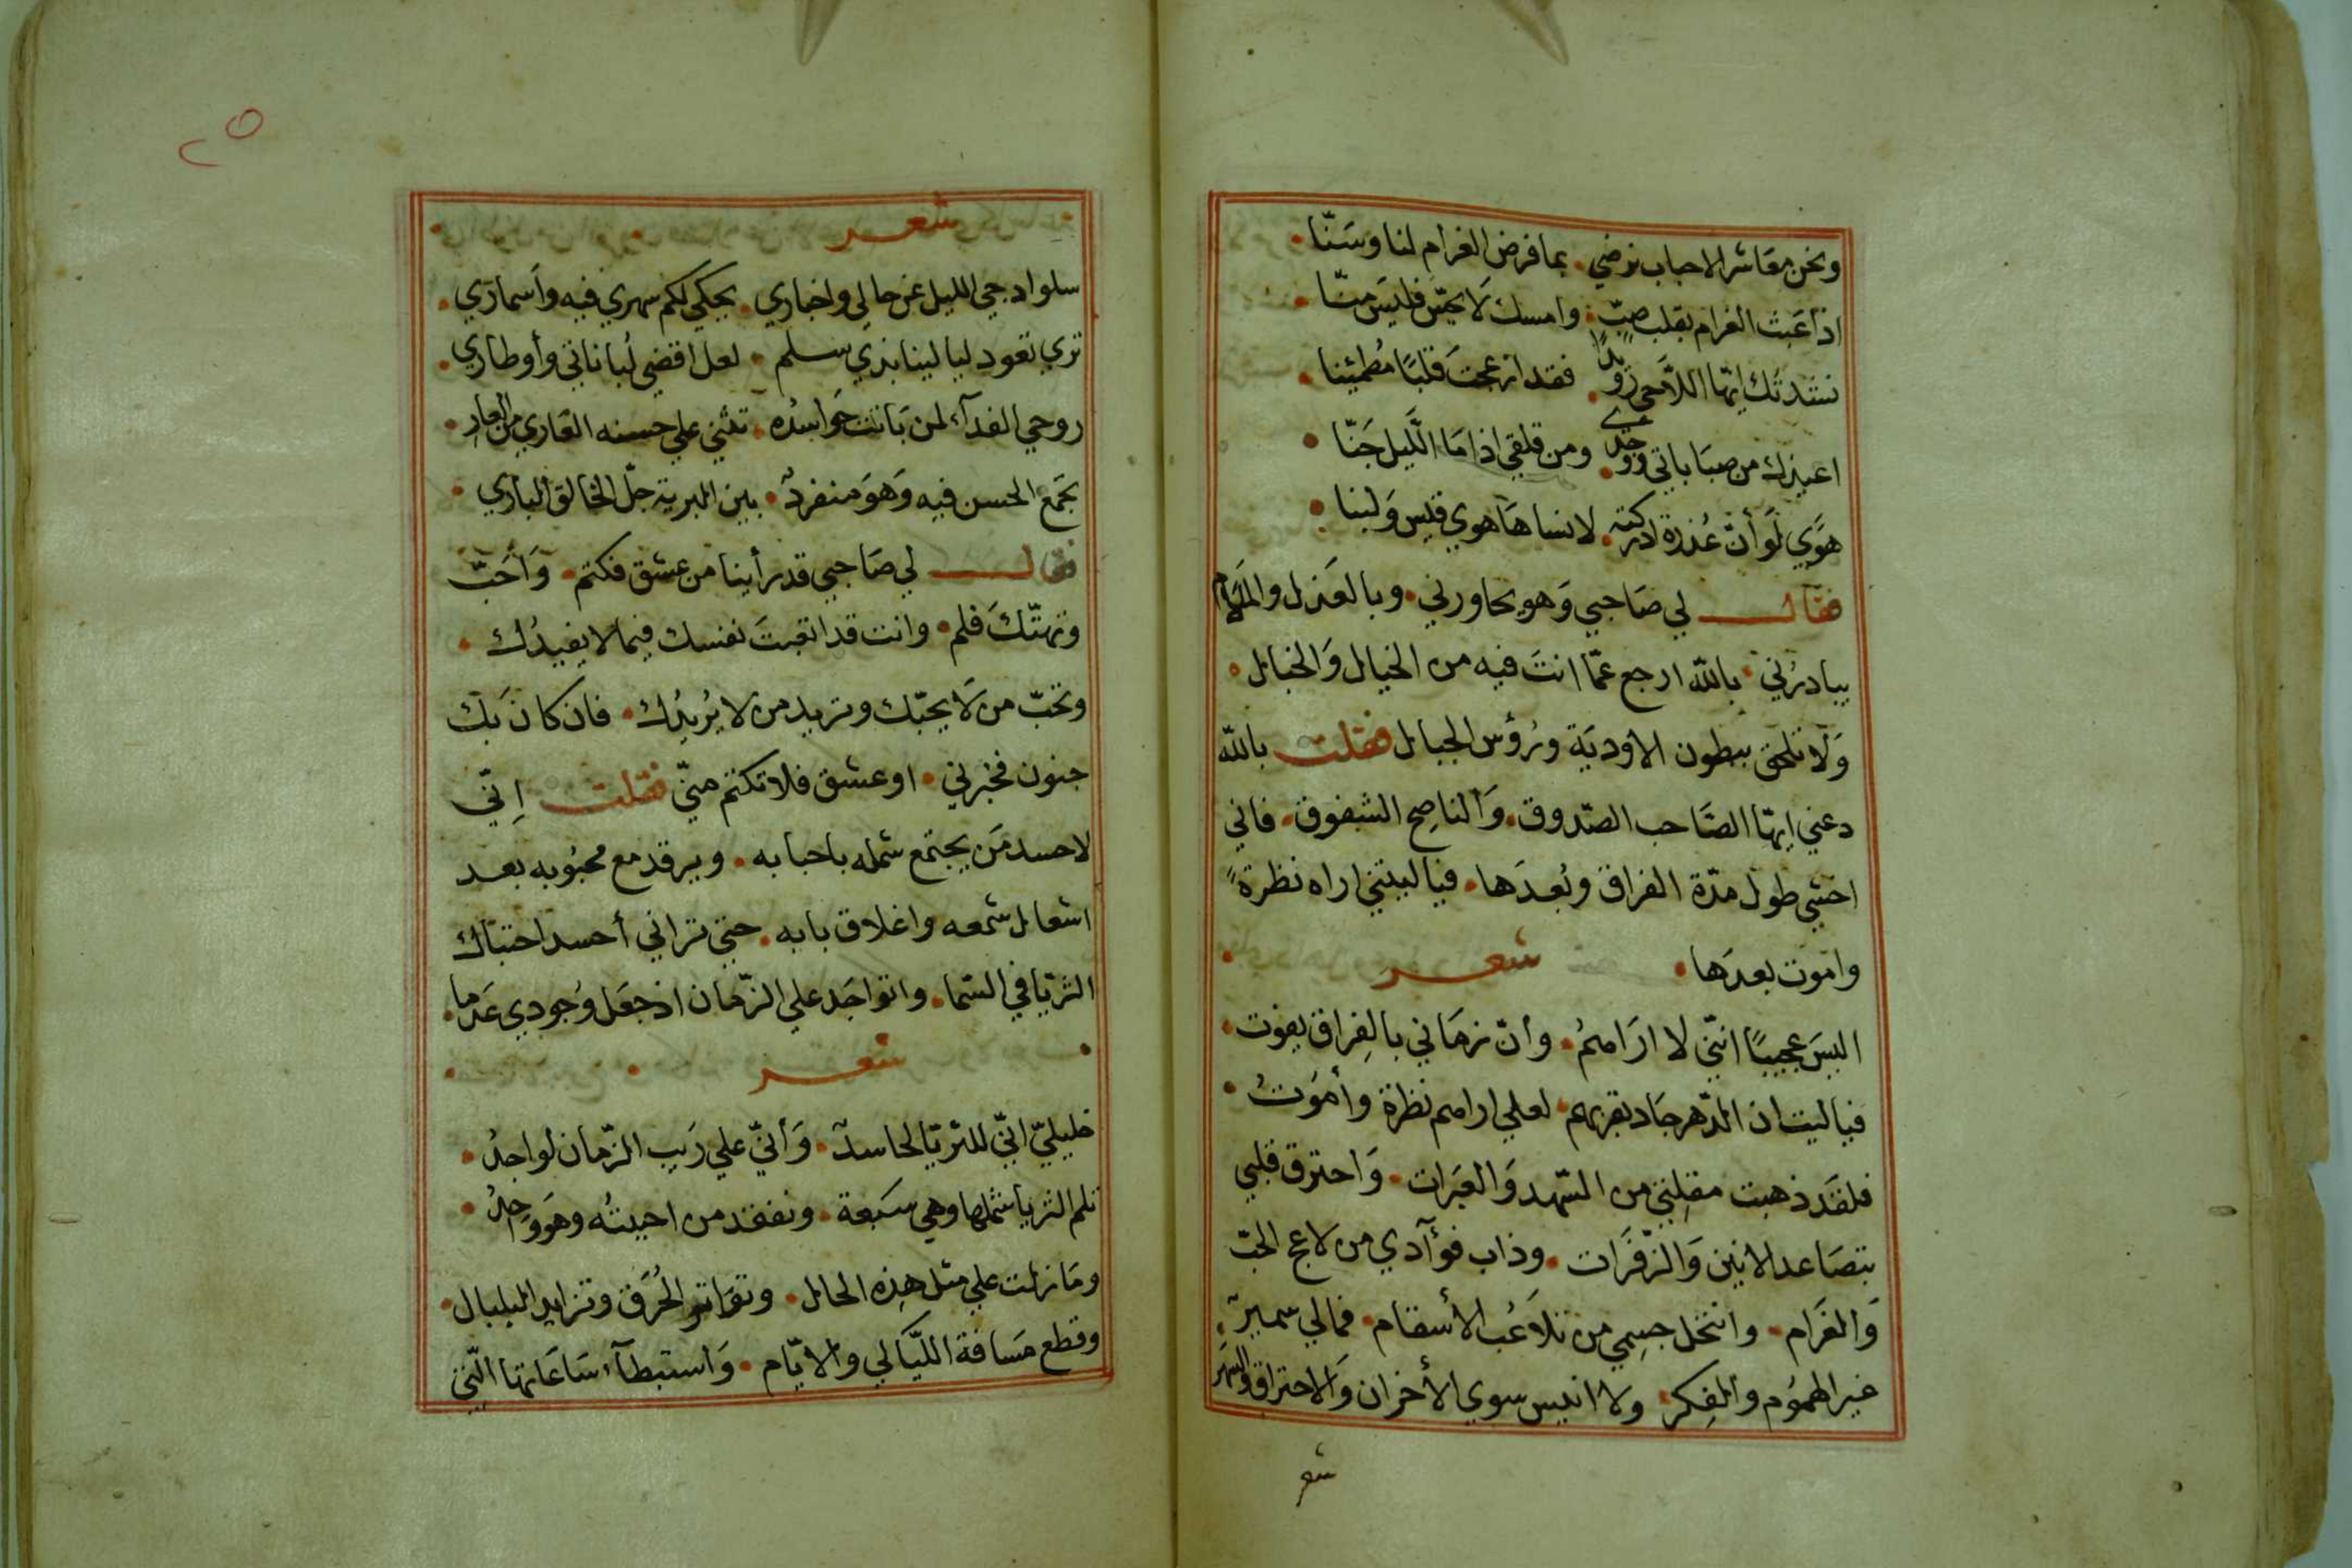 ونحن معَاشر الاحباب نرضي . بما فرض الغرام لنا وسَنّا .
اذا عَبث الغرام بقلب صبٍّ . وامسك لَا يحنّ فليسَ منّا .
نشدتُك ايّها اللّاحي رُويدًا . فقد ازعجتَ قلبًا مُطمئينا .
اعيذك من صبَاباتي ووجدي . ومن قلقي اذا مَا الَّليل جَنّا .
هوَي لَو أنّ عُذرة ادركته . لانساهَا هوي قيس وَلبنا .
فقال لي صَاحبي وَهو يحاورني . وبالعَذل والملام
يبادرُني . بالله ارجع عمّا انتَ فيه من الخيال وَالخبال .
وَلا تلحق ببطون الاوديَة ورُؤس الجبال فقلت بالله
دعني ايهّا الصَّاحب الصّدوق . وَالناصِح الشفوق . فاني
اخشي طول مدّة الفراق وبُعدَها . فيا ليتني اراه نظرةً
واموت بعدَها . شعر .
اليسَ عجيبًا انّني لا ارَاهمُ . وأنّ زمَاني بالفِراق يفوت .
فيا ليت ان الدّهر جَاد بقربهم . لعلي اراهم نظرة وأموَتُ .
فلقَد ذهبت مقلِتي من السّهد وَالعبَرات . وَاحترق قلبي
بتصَاعد الانين وَالزّفرَات . وذاب فوآدي من لاعج الحبّ
وَالغَرام . وانتحل جسِمي من تلاَعُب الأسقام . فمالي سميرٌ .
غير الهمُوم والفِكر . ولا انيس سوي الأحزان وَالاحتراق والسهَر
شعر
٢٥
شعر
سلوا دجي الليل عن حالي واخباري . يحكي لكم سهري فيه وأسمارَي .
تري تعود ليالينا بذي سلم . لعل اقضي لُباناتي وأوطاري .
روحي الفدآء لمن بَانت حَواسدُه . تثني علي حسنه العَاري من العارِ .
تجمَّع الحسن فيه وَهوَ منفردٌ . بين البرية جلّ الخالق الباري .
فقال لي صَاحبي قد رأينا من عشق فكتم . وَأحَبّ
وتهتّكَ فلم . وانت قد اتعبتَ نفسك فيما لا يفيدُك .
وتحبّ من لَا يحبّك وتريد من لا يُريدُك . فان كان بَك
جنون فخبرني . او عشق فلا تكتم منّي فقلت اِنّي
لاحسد مَن يجتمع شمله باحبابه . ويرقد مع محبُوبه بعد
اشعال شمعه واغلاق بابه . حتي تراني أحسد احتباك
الثريّا في السّما . واتواجَد علي الزّمان اذ جعَل وُجودي عَدما .
شعر
خليليّ انّي للثريّا لحاسدٌ . وَأنيّ علي رَيب الزّمان لواجدُ .
تلم الثريا شملها وهي سَبعة . ونفقد من احببتُه وهوَ وَاحِدُ .
ومَا زلت علي مثل هذِه الحال . وتوَاتر الحُرَق وتزايد البلبال .
وقطع مَسافة اللّيَالي والايّام . وَاستبطآء سَاعَاتها الّتي